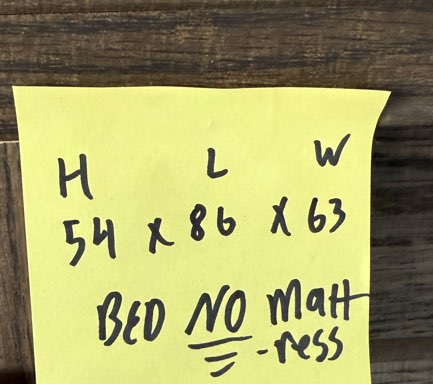 H L W
54 x 86 x 63
BED NO Matt
-ress